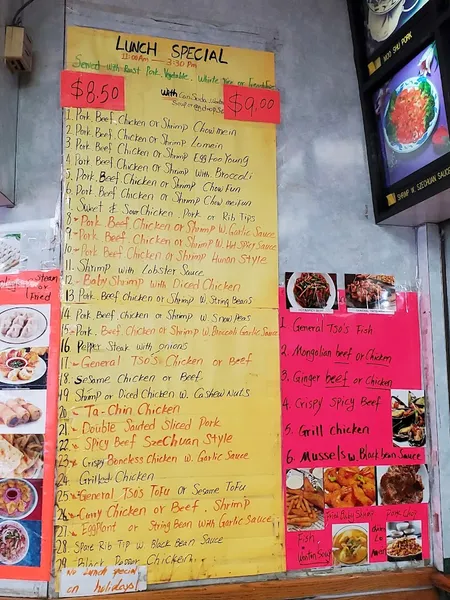 LUNCH SPECIAL
11:00AM — 3:30PM
$8.50
With
$9.00
1. Pork Beef Chicken or Shrimp Chowmein
2. Pork Beef Chicken or Shrimp Lomein
3 Pork Beef Chicken or Shrimp Egg Foo Young
4 Pork Beef Chicken or Shrimp with Broccoli
5. Pork Beef Chicken or Shrimp Chow Fun
6. Pork Beef Chicken or Shrimp Chow mei Fun
7. Sweet & Sour Chicken. Pork or Rib Tips
8- Pork Beef Chicken or Shrimp W. Garlic Sauce
9- Pork Beef Chicken or Shrimp W. Hot Spicy Sauce
10- Pork Beef Chicken or Shrimp Hunan Style
11. Shrimp with Lobster Sauce
12- Baby Shrimp with Diced Chicken
13 Pork Beef Chicken or Shrimp W. String Beans
14 Pork Beef Chicken or Shrimp W. Snow Peas
15- Pork. Beef Chicken or Shrimp W. Broccoli Garlic Sauce
16 Pepper Steak with onions
17- General Tso's Chicken or Beef
18. Sesame Chicken or Beef
19 Shrimp or Diced Chicken W. Cashew Nuts
20- Ta-Chin Chicken
21- Double Sauted Sliced Pork
22- Spicy Beef SzeChuan Style
23- Crispy Boneless Chicken W. Garlic Sauce
24- Grilled Chicken
25- General Tso's Tofu or Sesame Tofu
26- Curry Chicken or Beef. Shrimp
27- Eggplant or String Bean With Garlic Sauce
28. Spare Rib Tip W. Black Bean Sauce
29 Black Pepper Chicken
No Lunch Special
on holidays!
Steam
or
Fried
1 General Tso's Fish
2. Mongolian beef or Chicken
3. Ginger beef or Chicken
4 Crispy Spicy Beef
5. Grill Chicken
6. Mussels w. Black bean Sauce
Fish
Winton Soup
MOO SHU PORK
SHRIMP W. SZECHUAN SAUCE